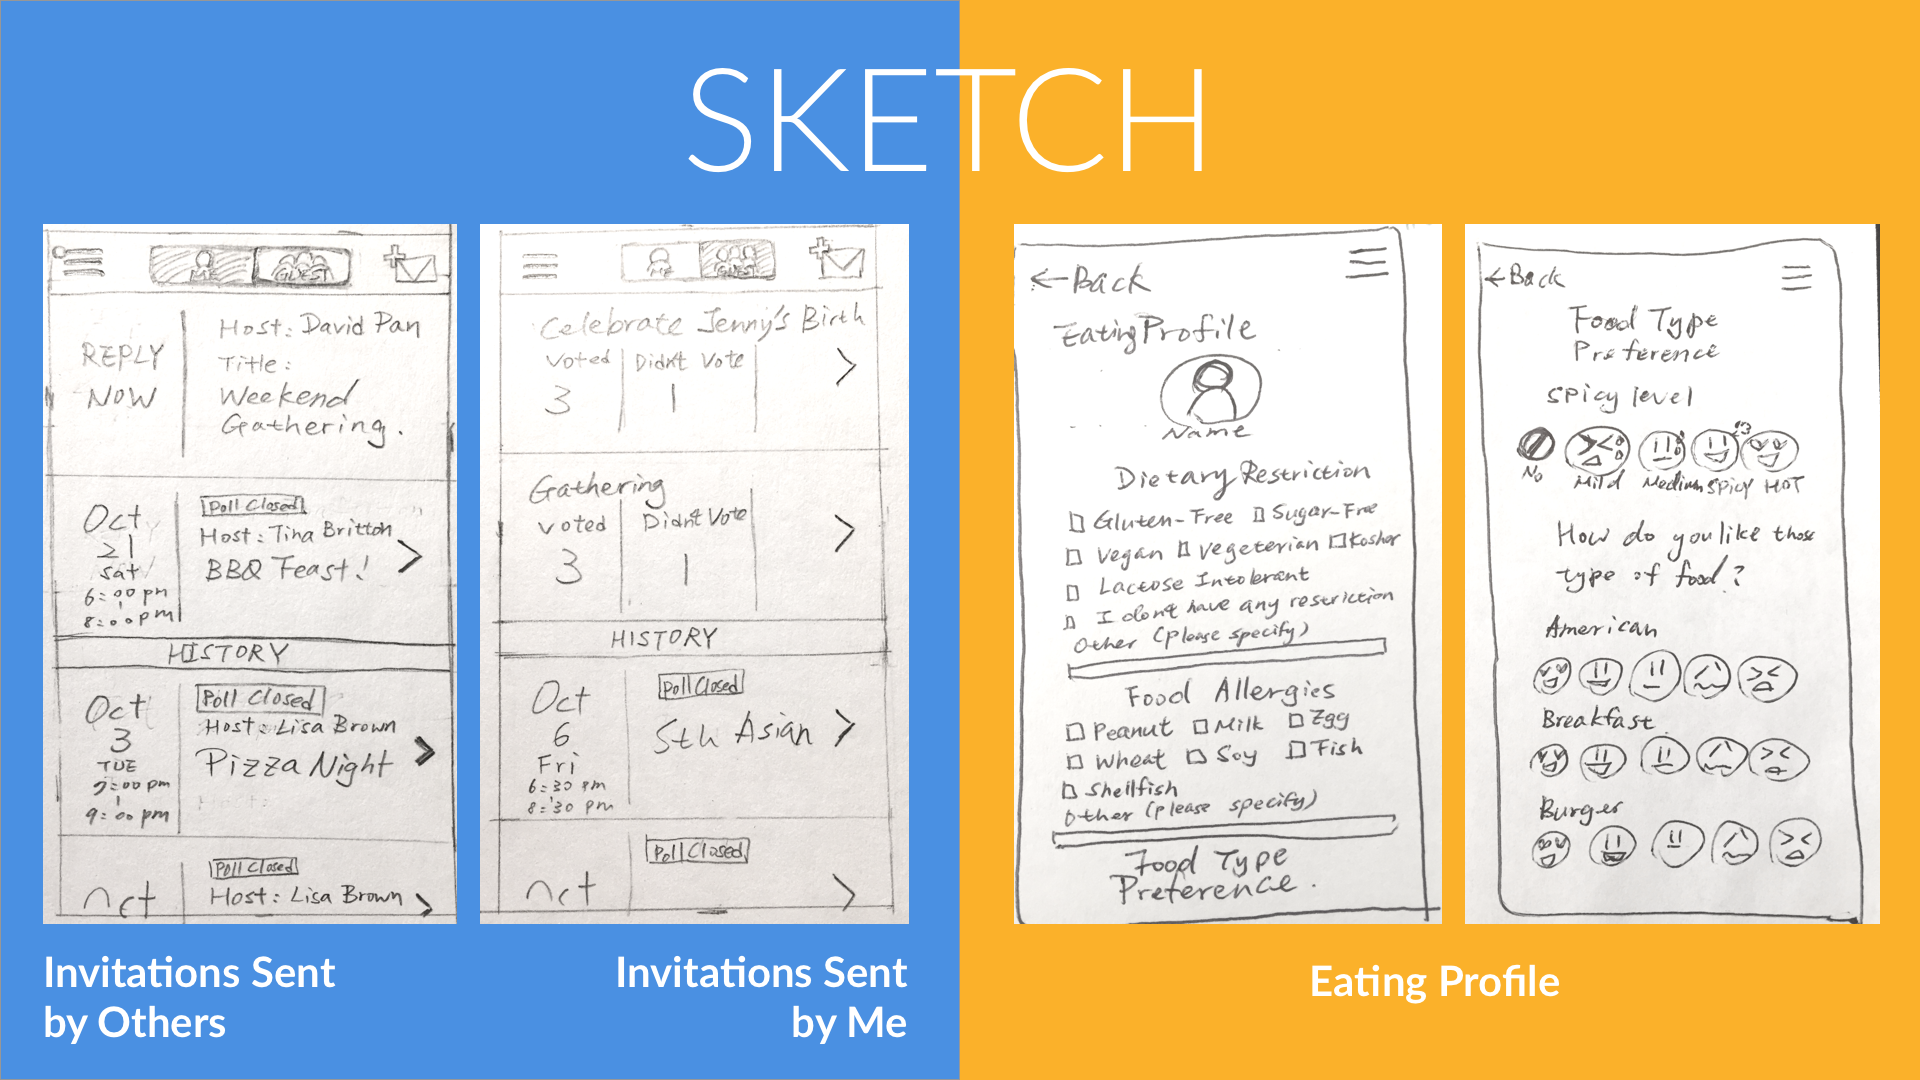 SKETCH
ME GUEST
REPLY NOW
Host: David Pan
Title:
Weekend
Gathering.
Oct
21
Sat
6:00 pm
8:00 pm
Poll Closed
Host: Tina Britton
BBQ Feast!
HISTORY
Oct
3
TUE
7:00 pm
9:00 pm
Poll Closed
Host: Lisa Brown
Pizza Night
Oct
Poll Closed
Host: Lisa Brown
ME GUEST
Celebrate Jenny's Birth
Voted Didn't Vote
3 1
Gathering
Voted Didn't Vote
3 1
HISTORY
Oct
6
Fri
6:30 pm
8:30 pm
Poll Closed
5th Asian
Oct
Poll Closed
←Back
Eating Profile
Name
Dietary Restriction
Gluten-Free Sugar-Free
Vegan Vegeterian Kosher
Lactose Intolerant
I don't have any restriction
Other (please specify)
Food Allergies
Peanut Milk Egg
Wheat Soy Fish
Shellfish
Other (please specify)
Food Type
Preference.
←Back
Food Type
Preference
Spicy level
No Mild Medium Spicy HOT
How do you like those
type of food?
American
Breakfast
Burger
Invitations Sent
by Others
Invitations Sent
by Me
Eating Profile